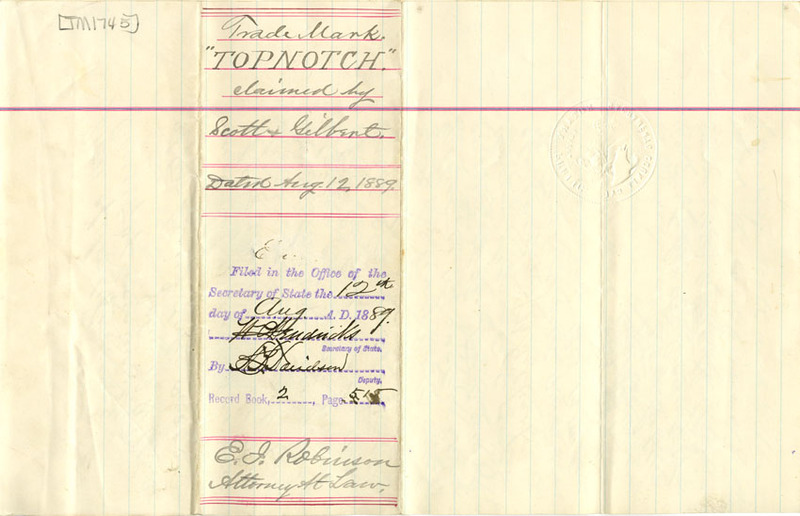 [TM1745]
Trade Mark.
"TOPNOTCH."
claimed by
Scott & Gilbert.
Dated Aug. 12, 1889.
Filed in the Office of the
Secretary of State the 12th
day of Aug A. D. 1889.
W C Hendricks
Secretary of State.
By Davidson
Deputy.
Record Book, 2, Page 515
E. J. Robinson
Attorney At Law.